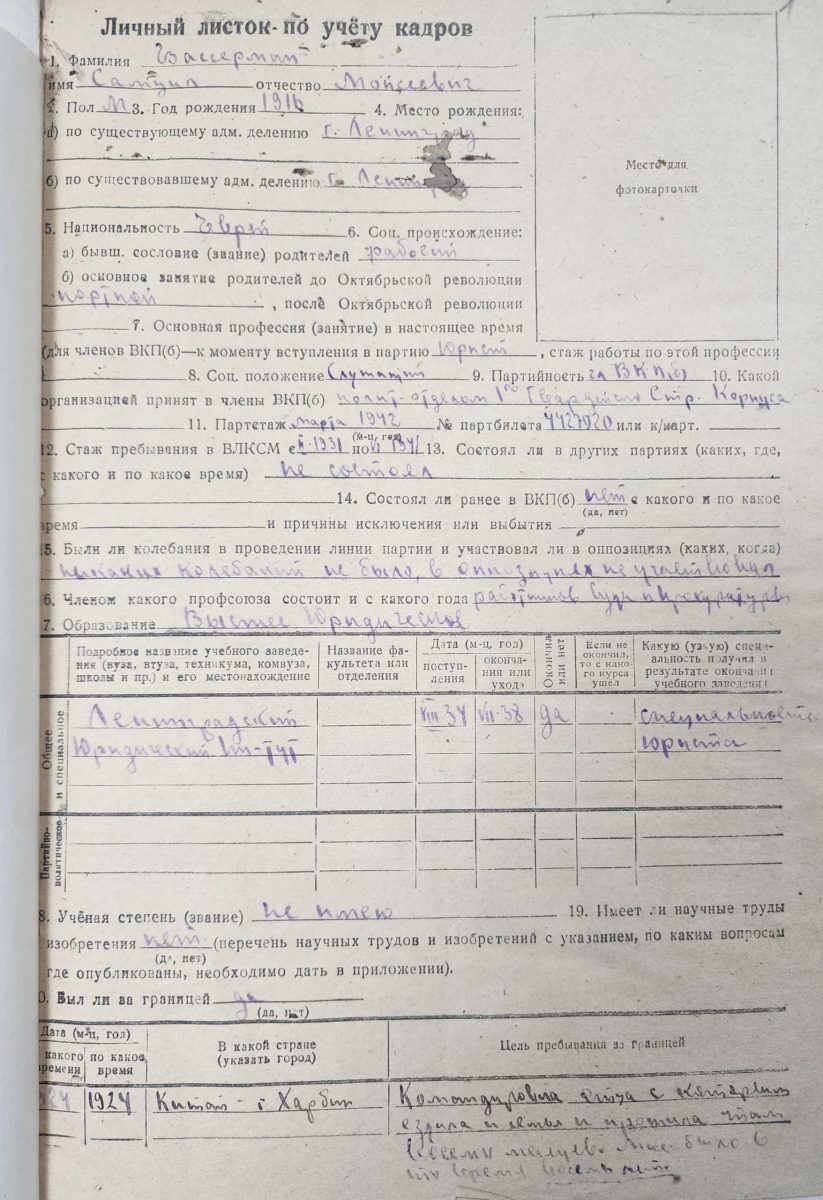 1
Личный листок по учёту кадров
1. Фамилия Вассерман
имя Самуил отчество Моисеевич
2. Пол М 3. Год рождения 1916 4. Место рождения:
а) по существующему адм. делению г. Ленинград
б) по существовавшему адм. делению г. Ленинград
Место для
фотокарточки
5. Национальность Еврей 6. Соц. происхождение:
а) бывш. сословие (звание) родителей рабочий
б) основное занятие родителей до Октябрьской революции
портной, после Октябрьской революции
7. Основная профессия (занятие) в настоящее время
(для членов ВКП(б)—к моменту вступления в партию Юрист, стаж работы по этой профессии
8. Соц. положение Служащий 9. Партийность чл ВКП(б) 10. Какой
организацией принят в члены ВКП(б) полит-отделом 1го Гвардейского Стр. Корпуса
11. Партстаж марта 1942 № партбилета 4427920 или к/карт.
(м-ц, год)
12. Стаж пребывания в ВЛКСМ с II-1931 по VI 1941 13. Состоял ли в других партиях (каких, где,
с какого и по какое время) не состоял
14. Состоял ли ранее в ВКП(б) нет с какого и по какое
(да, нет)
время и причины исключения или выбытия
15. Были ли колебания в проведении линии партии и участвовал ли в оппозициях (каких, когда)
никаких колебаний не было, в оппозициях не участвовал
16. Членом какого профсоюза состоит и с какого года работников Суда и прокуратуры
17. Образование Высшее Юридическое
Подробное название учебного заведения (вуза, втуза, техникума, комвуза, школы и пр.) и его местонахождение
Название факультета или отделения
Дата (м-ц, год)
поступления
окончания или ухода
Окончил или нет
Если не окончил, то с какого курса ушёл
Какую (узкую) специальность получил в результате окончания учебного заведения
Общее и специальное
Ленинградский VIII-34 VII-38 да специальность
Юридический Ин-тут юриста
Партийно-политическое
18. Учёная степень (звание) не имею 19. Имеет ли научные труды
изобретения нет (перечень научных трудов и изобретений с указанием, по каким вопросам
(да, нет)
где опубликованы, необходимо дать в приложении).
20. Был ли за границей да
(да, нет)
Дата (м-ц, год)
какого времени
по какое время
В какой стране
(указать город)
Цель пребывания за границей
1924 Китай - г Харбин Командировка отца с которым
ездила и семья и прожила там
восемь месяцев. Мне было в
то время восемь лет.